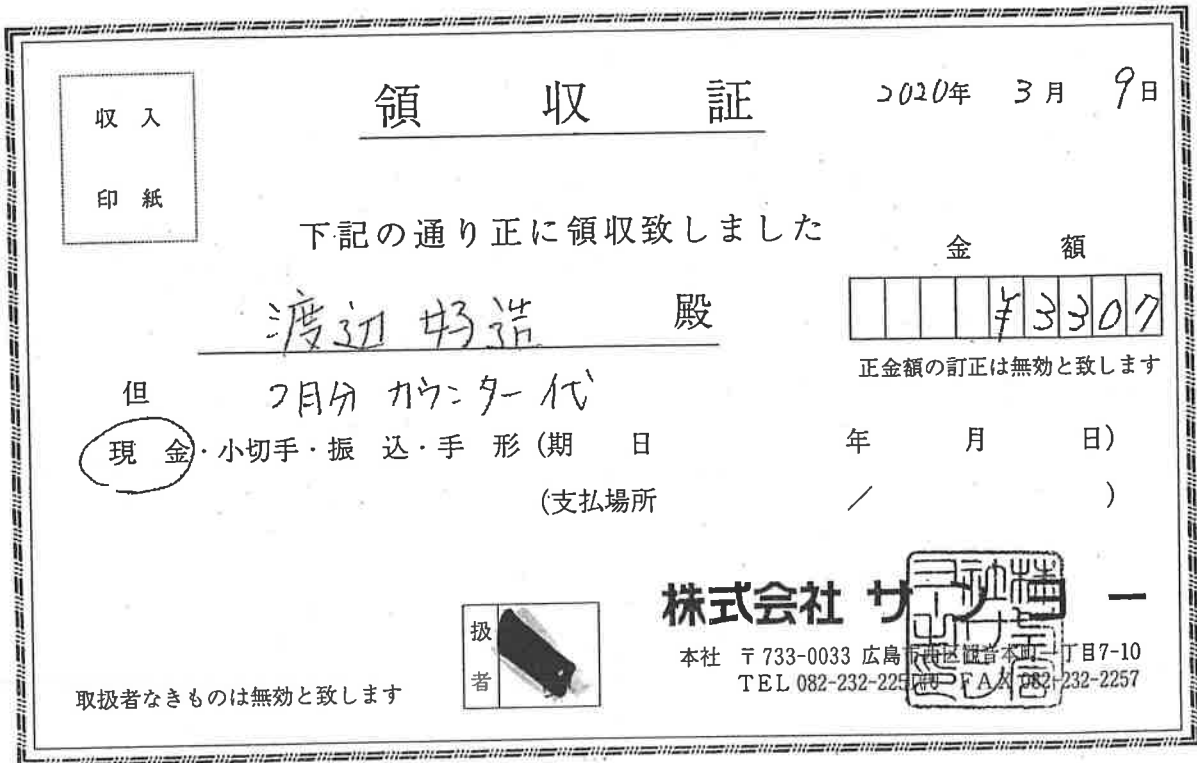 収入
印紙
領収証
2020年 3月 9日
下記の通り正に領収致しました
渡辺 好造 殿
金額
¥3307
正金額の訂正は無効と致します
但 2月分 カウンター代
現金・小切手・振込・手形 (期日 年 月 日)
(支払場所 / )
株式会社 サンヨー
扱者
本社 〒733-0033 広島市西区観音本町一丁目7-10
TEL 082-232-225 FAX 082-232-2257
取扱者なきものは無効と致します